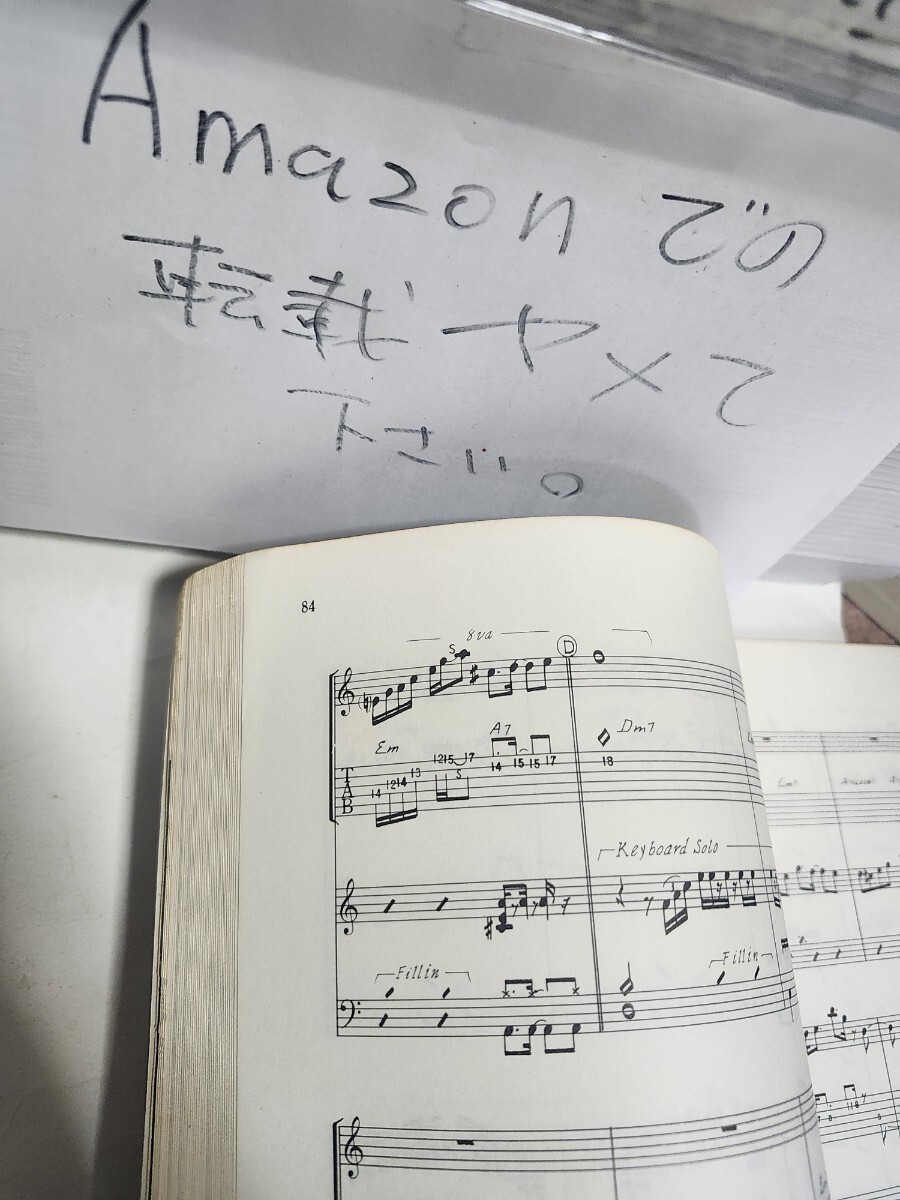 Amazonでの
転載ヤメて
下さい。
84
8va
S
D
Em
A7
Dm7
14 12 14 13 12 15 17 14 15 15 17 18
S
T
A
B
Keyboard Solo
Fillin
Fillin
Em7